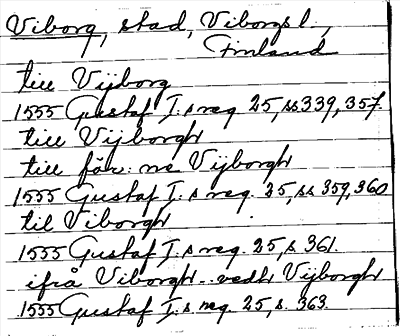 Viborg, stad, Viborgs l.,
Finland
till Vijborg
1555 Gustaf I:s reg. 25, ss 339, 357.
till Vijborgh
till för: ne Vijborgh
1555 Gustaf I:s reg. 25, ss 359, 360
til Viborgh
1555 Gustaf I:s reg. 25, s. 361.
ifrå Viborgh .. vedh Vijborgh
1555 Gustaf I:s reg. 25, s. 363.